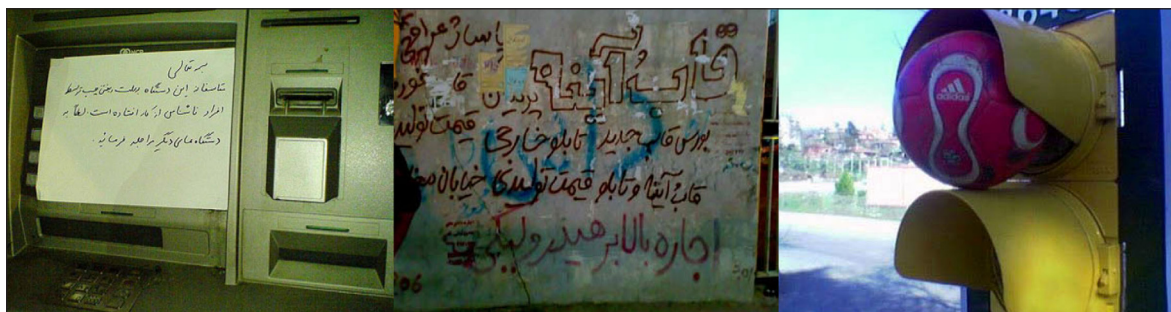 NCR
بسمه تعالی
متاسفانه این دستگاه بعلت ریختن چسب توسط
افراد ناشناس از کار افتاده است لطفاً به
دستگاه های دیگر مراجعه فرمائید.
پاساژ عراقی
قاب آینه
بورس قاب جدید تابلو خارجی قیمت تولیدی
قاب آینه و تابلو قیمت تولیدی خیابان
اجاره بالابر هیدرولیکی
adidas